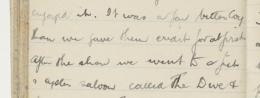 enjoyed it. It was a far better Coy
than we gave them credit for at first
After the show we went to a
oyster saloon called the Dive &